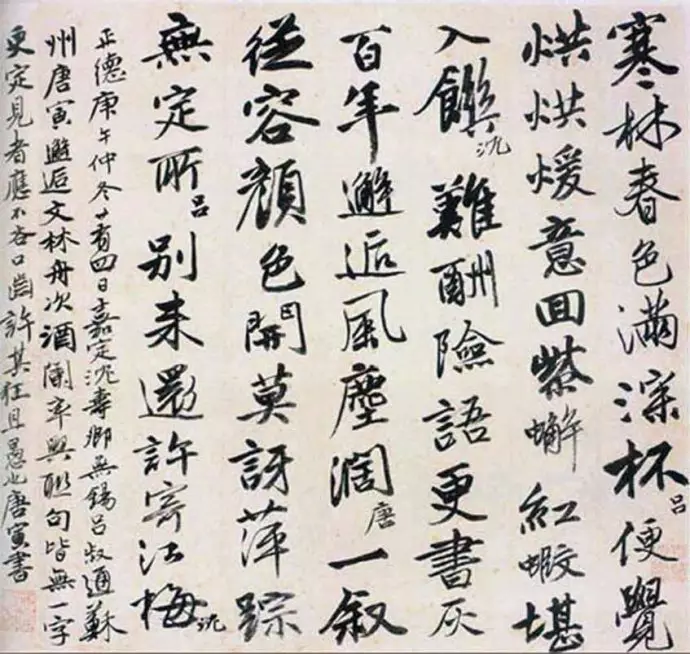 寒林春色滿深杯呂便覺
烘烘煖意回紫蠏紅蝦堪
入饌沈難酬險語更書灰
百年邂逅風塵濶唐一叙
從容顏色開莫訝萍踪
無定所呂別來還許寄江梅沈
正德庚午仲冬廿有四日嘉定沈壽卿無錫呂叔通蘇
州唐寅邂逅文林舟次酒闌率興聯句皆無一字
更定見者應不吝口齒許其狂且愚也唐寅書